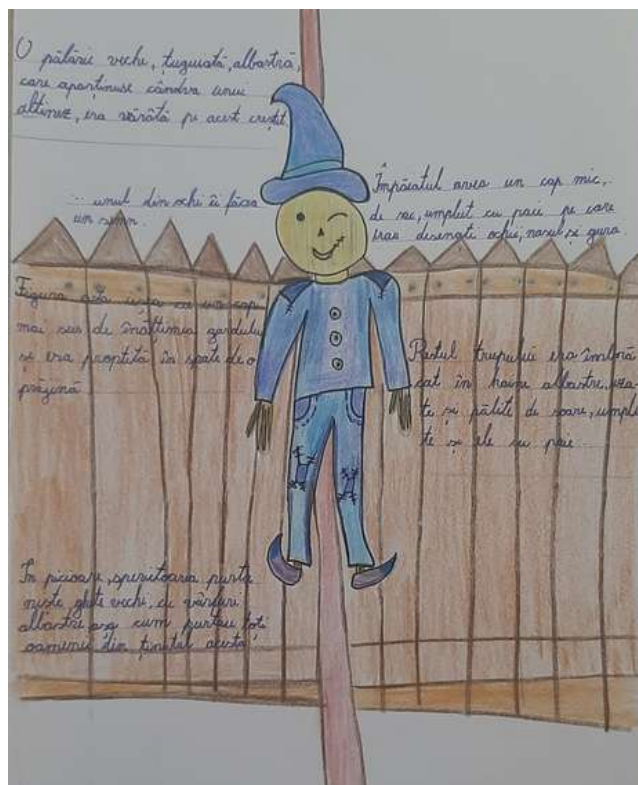 O pălărie veche, țuguiată, albastră,
care aparținuse cândva unui
altinez, era vârâtă pe acest creștet.
... unul din ochi îi făcea
un semn.
Împăiatul avea un cap mic,
de sac, umplut cu paie pe care
erau desenați ochii, nasul și gura.
Figura asta ieșea cu un cap
mai sus de înălțimea gardului
și era proptită în spate de o
prăjină
Restul trupului era îmbră
cat în haine albastre, uza-
te și pălite de soare, umplu
te și ele cu paie.
În picioare, sperietoarea purta
niște ghete vechi, cu vârfuri
albastre așa cum purtau toți
oamenii din ținutul acesta.